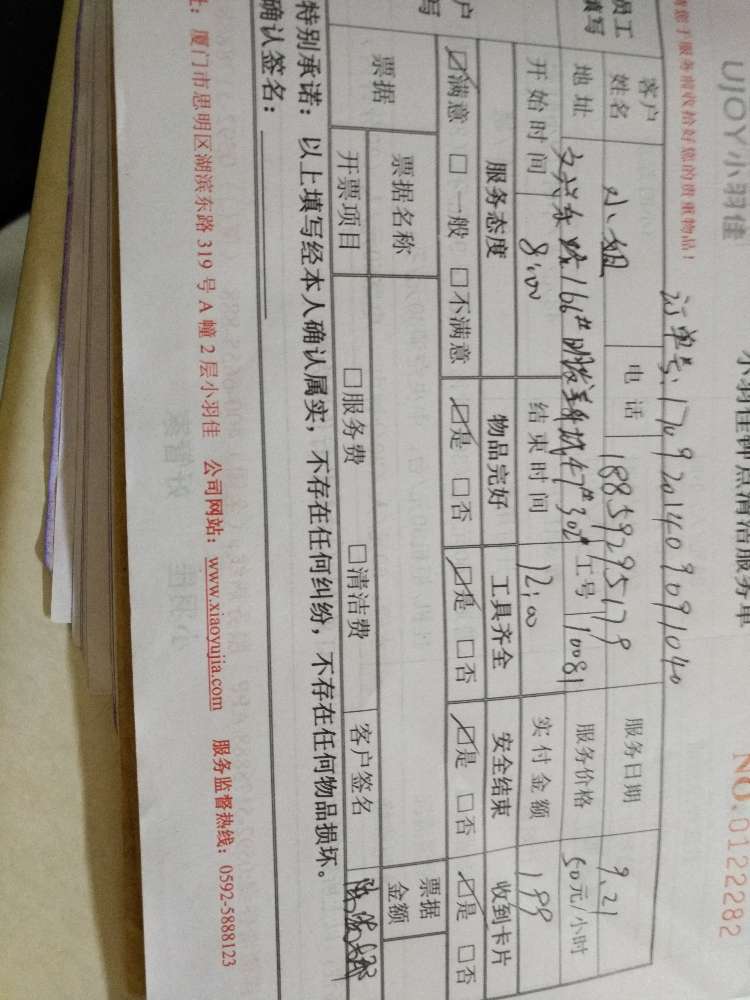 UJOY小羽佳
小羽佳钟点清洁服务单
NO.0122282
于服务前收拾好您的贵重物品!
订单号:1709201409091040
员工
填写
客户
姓名
小姐
电话
18859295179
服务日期
9.21
地址
工号
10081
服务价格
50元/小时
开始时间
8:00
结束时间
12:00
实付金额
199
户
写
服务态度
物品完好
工具齐全
安全结束
收到卡片
☑满意 □一般 □不满意
☑是 □否
☑是 □否
☑是 □否
☑是 □否
票据
票据名称
票据
金额
开票项目
□服务费 □清洁费
客户签名
特别承诺:以上填写经本人确认属实,不存在任何纠纷,不存在任何物品损坏。
确认签名:
址:厦门市思明区湖滨东路 319 号 A 幢 2 层小羽佳 公司网站:www.xiaoyujia.com 服务监督热线:0592-5888123